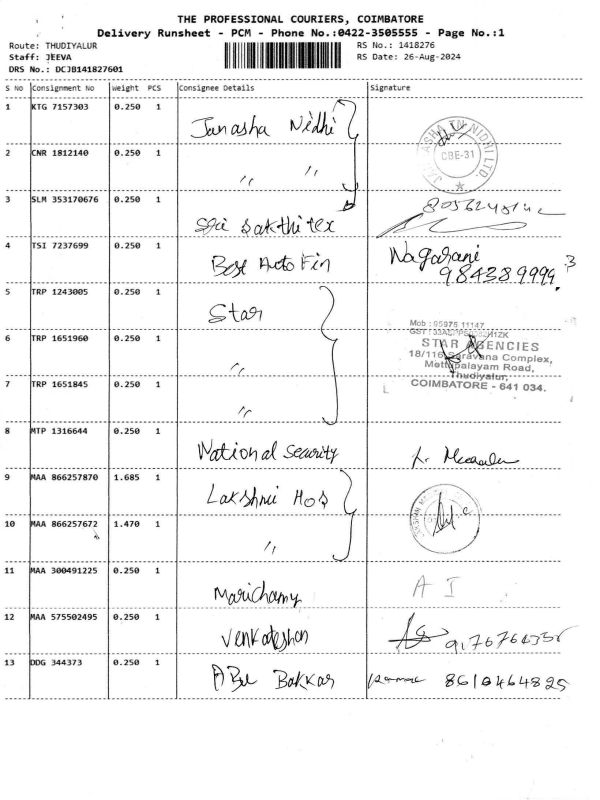 THE PROFESSIONAL COURIERS, COIMBATORE
Delivery Runsheet - PCM - Phone No.:0422-3505555 - Page No.:1
Route: THUDIYALUR RS No.: 1418276
Staff: JEEVA RS Date: 26-Aug-2024
DRS No.: DCJB141827601
S No Consignment No Weight PCS Consignee Details Signature
1 KTG 7157303 0.250 1 Janasha Nidhi
CBE-31
2 CNR 1812140 0.250 1 〃
3 SLM 353170676 0.250 1 Sri Sakthi tex
4 TSI 7237699 0.250 1 Best Auto Fin Nagarani
984389999.3
5 TRP 1243005 0.250 1 Star
Mob : 95975 11147
6 TRP 1651960 0.250 1 〃 STAR AGENCIES
18/116, Saravana Complex,
Mettupalayam Road,
7 TRP 1651845 0.250 1 〃 Thudiyalur,
COIMBATORE - 641 034.
8 MTP 1316644 0.250 1 National Security
9 MAA 866257870 1.685 1 Lakshmi Hos
10 MAA 866257672 1.470 1 〃
11 MAA 300491225 0.250 1 Marichamy A I
12 MAA 575502495 0.250 1 Venkateshan
13 DDG 344373 0.250 1 ABu Bakkar 8610464825